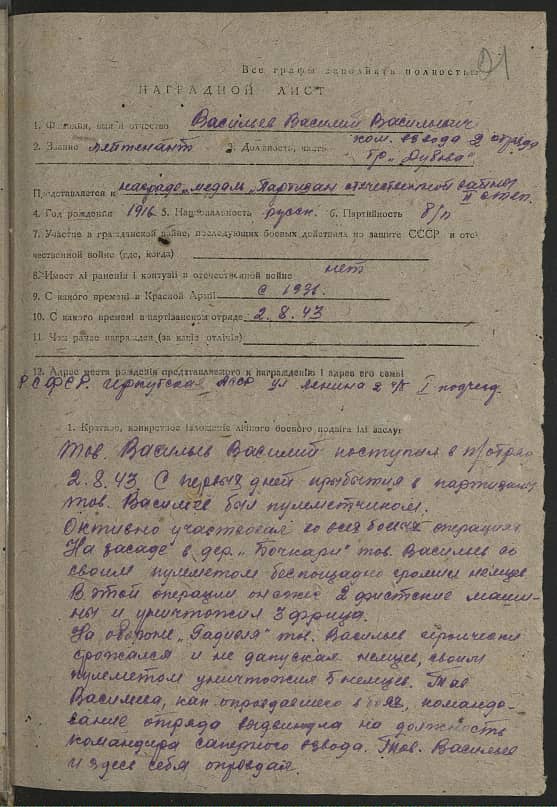 91
Все графы заполнить полностью
НАГРАДНОЙ ЛИСТ
1. Фамилия, имя и отчество Васильев Василий Васильевич
2. Звание лейтенант 3. Должность, часть ком. взвода 2 отряда
бр. „Дубова"
Представляется к награде „медаль „Партизан отечественной войны"
II степ.
4. Год рождения 1916 5. Национальность русск. 6. Партийность б/п
7. Участие в гражданской войне, последующих боевых действиях по защите СССР и оте-
чественной войне (где, когда)
8. Имеет лі раненія і контузіі в отечественной войне нет
9. С какого времени в Красной Арміі с 193
10. С какого времени в партізанском отряде 2.8.43
11. Чем ранее награжден (за какіе отлічія)
12. Адрес места рожденія представляемого к награжденію і адрес его семьі
РСФСР. Иркутская ул Ленина 2 I подъезд.
1. Краткое, конкретное ізложеніе лічного боевого подвіга ілі заслуг
Тов. Васильев Василий поступил в п/отряд
2.8.43. С первых дней прибытия в партизаны
тов. Василев был пулеметчиком.
Активно участвовал во всех боевых операциях
На засаде в дер. „Бочкари" тов. Васильев со
своим пулеметом беспощадно громил немцев
В этой операции он сжег 2 машины
ны и уничтожил 3 фрица.
На обороне тов. Васильев героически
сражался и не допускал немцев, своим
пулеметом уничтожил 5 немцев. Тов
Василева, как оправдавшего в боях, командо-
вание отряда выдвинуло на должность
командира саперного взвода. Тов. Васильев
и здесь себя оправдал.